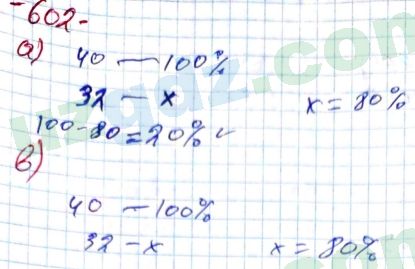 -602-
а) 40 — 100%
32 — x x = 80%
100-80=20%
в)
40 — 100%
32 - x x = 80%